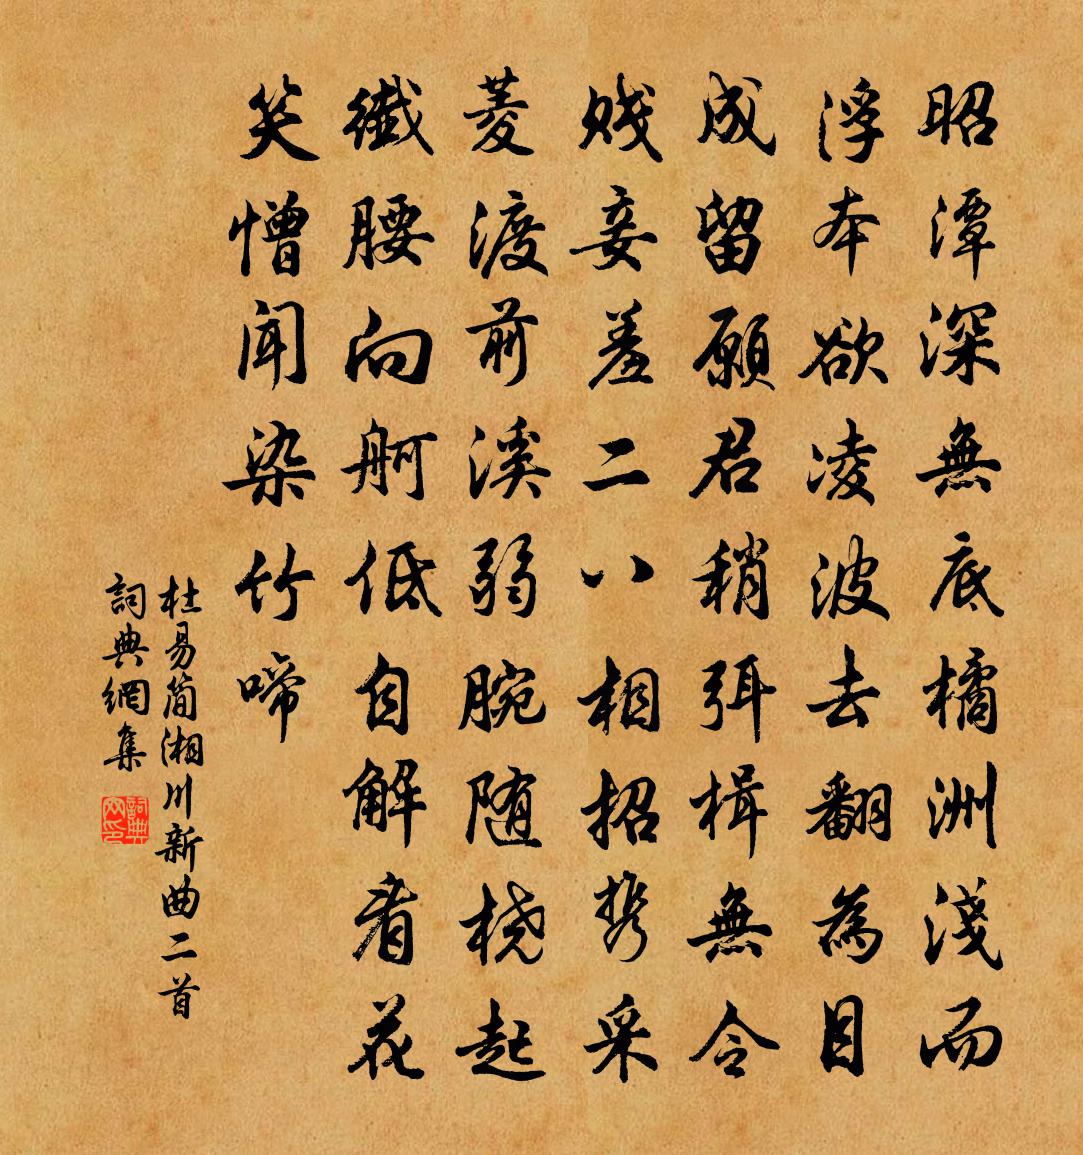 昭潭深無底橘洲淺而
浮本欲凌波去翻為目
成留願君稍弭楫無令
賤妾羞二八相招攜采
菱渡前溪弱腕隨橈起
纖腰向舸低自解看花
笑憎聞染竹啼
杜易簡湘川新曲二首
詞典網集
詞典
网印